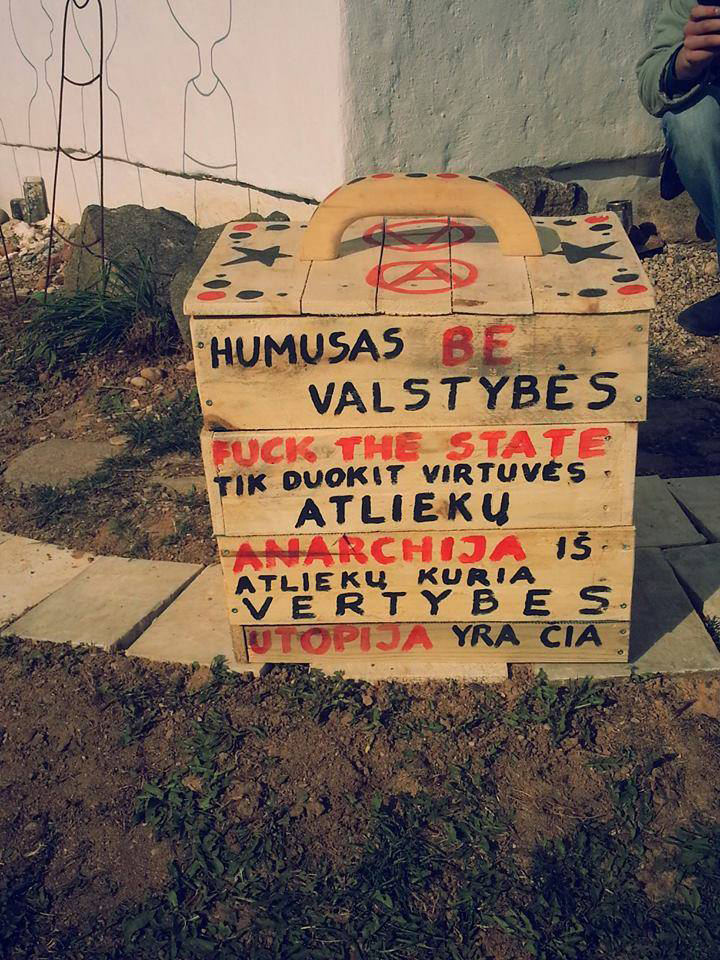 HUMUSAS BE
VALSTYBĖS
FUCK THE STATE
TIK DUOKIT VIRTUVĖS
ATLIEKŲ
ANARCHIJA IŠ
ATLIEKŲ KURIA
VERTYBES
UTOPIJA YRA ČIA